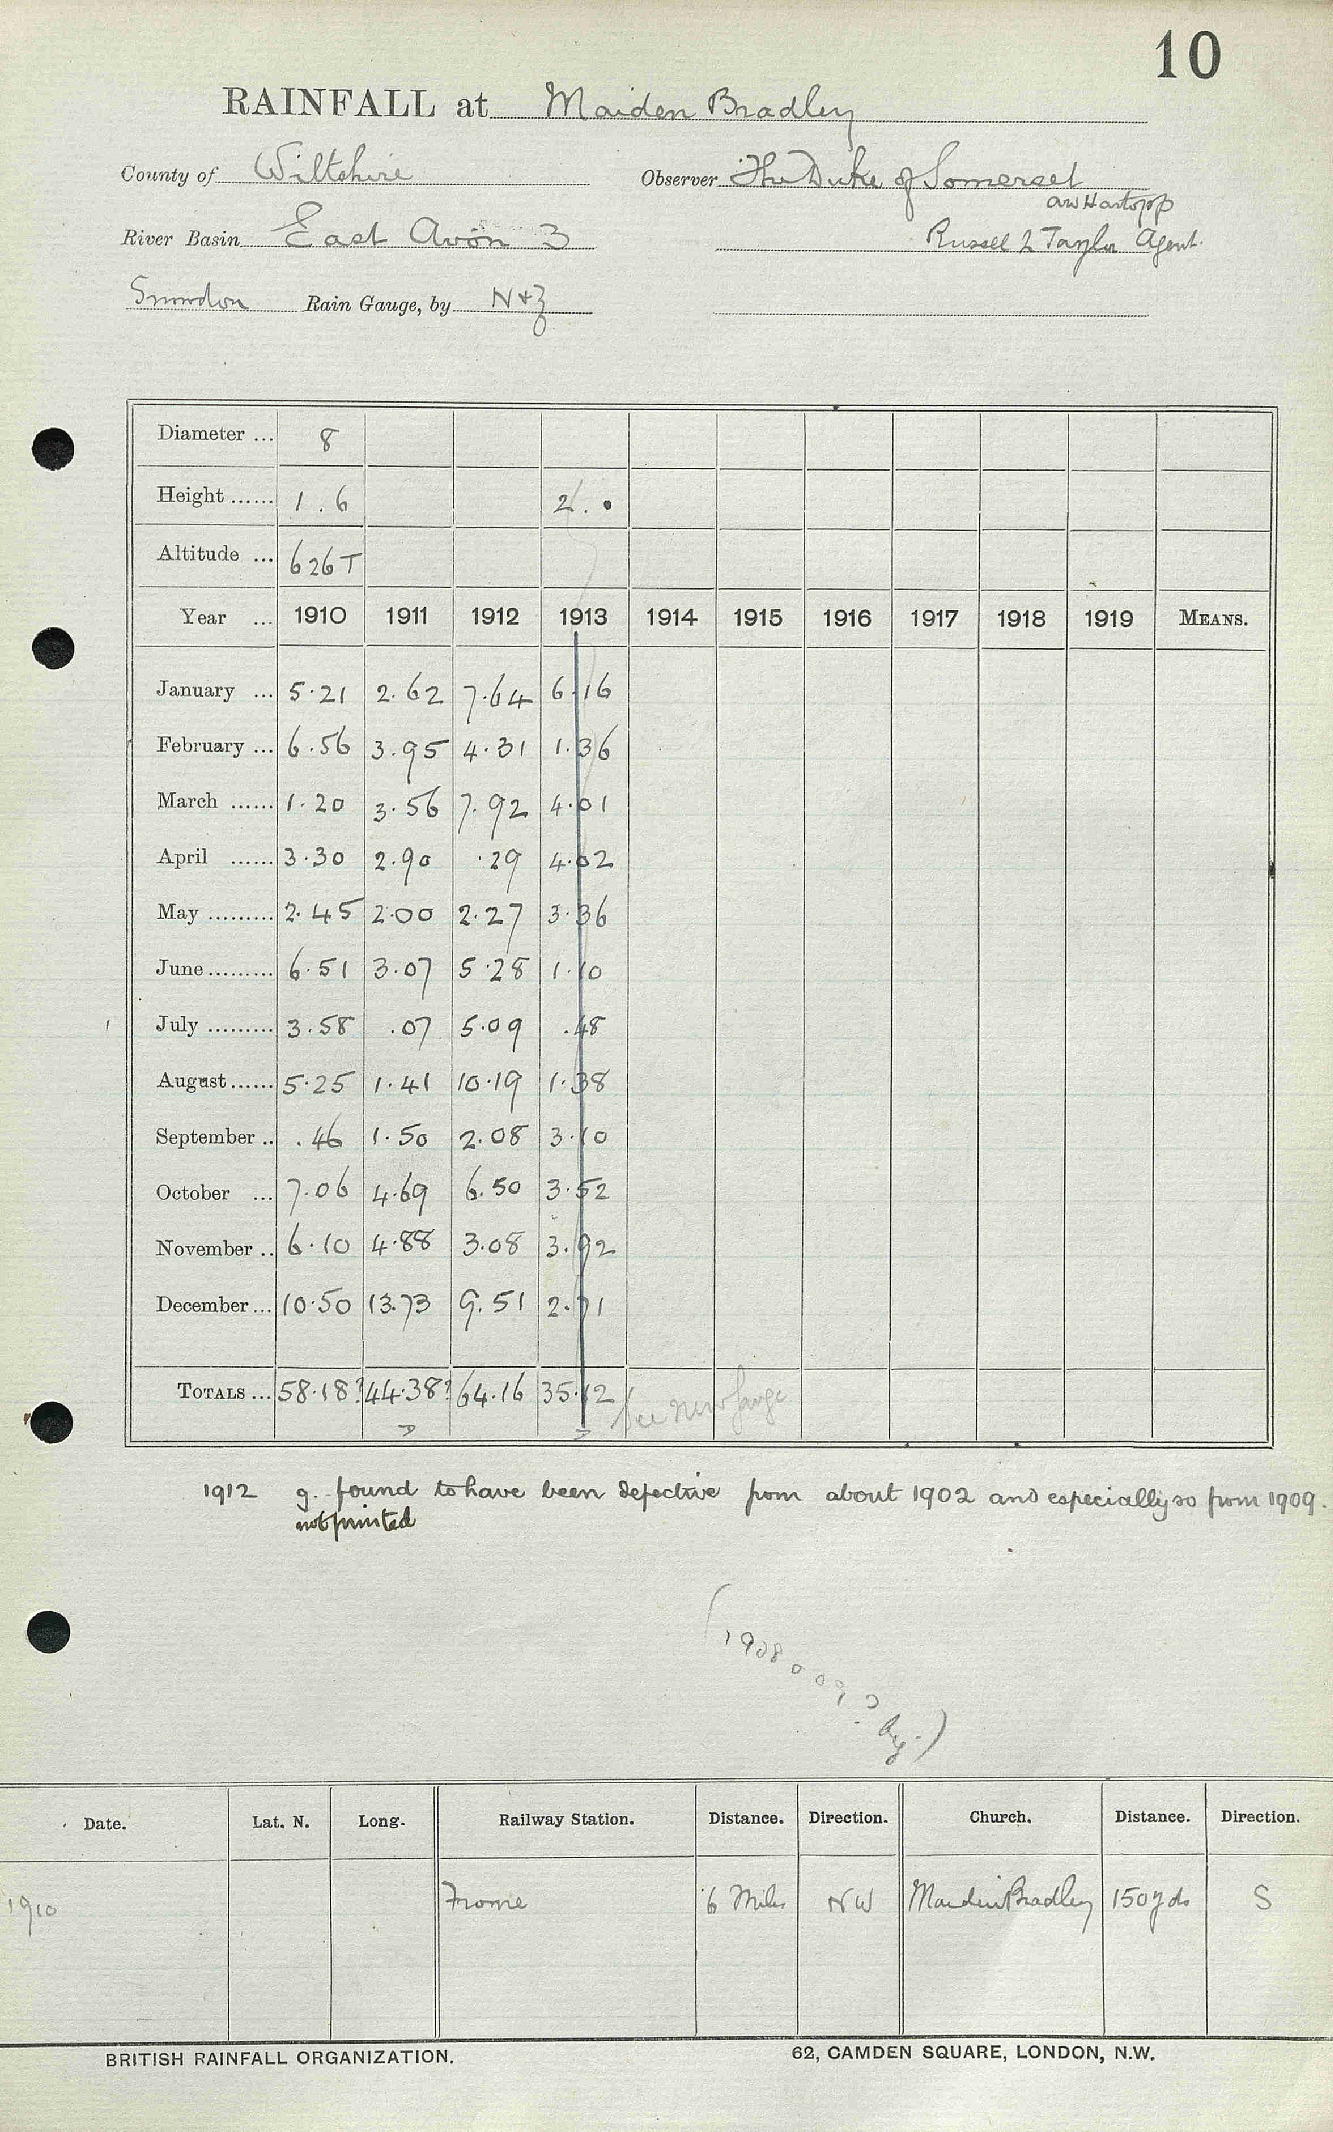 10
RAINFALL at Maiden Bradley
County of Wiltshire Observer The Duke of Somerset
aw Hartopp
River Basin East Avon 3 Russell L Taylor Agent.
Snowdon Rain Gauge, by N & Z
Diameter ... 8
Height ...... 1 . 6 2 . •
Altitude ... 626 T
Year ... 1910 1911 1912 1913 1914 1915 1916 1917 1918 1919 MEANS.
January ... 5.21 2.62 7.64 6.16
February ... 6.56 3.95 4.31 1.36
March ...... 1.20 3.56 7.92 4.01
April ...... 3.30 2.90 .29 4.02
May ......... 2.45 2.00 2.27 3.36
June ......... 6.51 3.07 5.28 1.10
July ......... 3.58 .07 5.09 .48
August ...... 5.25 1.41 10.19 1.38
September .. .46 1.50 2.08 3.10
October ... 7.06 4.69 6.50 3.52
November .. 6.10 4.88 3.08 3.92
December ... 10.50 13.73 9.51 2.71
TOTALS ... 58.18? 44.38? 64.16 35.12 See New Gauge
1912 g. found to have been defective from about 1902 and especially so from 1909.
not printed
(1908
Date. Lat. N. Long. Railway Station. Distance. Direction. Church. Distance. Direction.
1910 Frome 6 Miles NW Maiden Bradley 150 yds S
BRITISH RAINFALL ORGANIZATION. 62, CAMDEN SQUARE, LONDON, N.W.